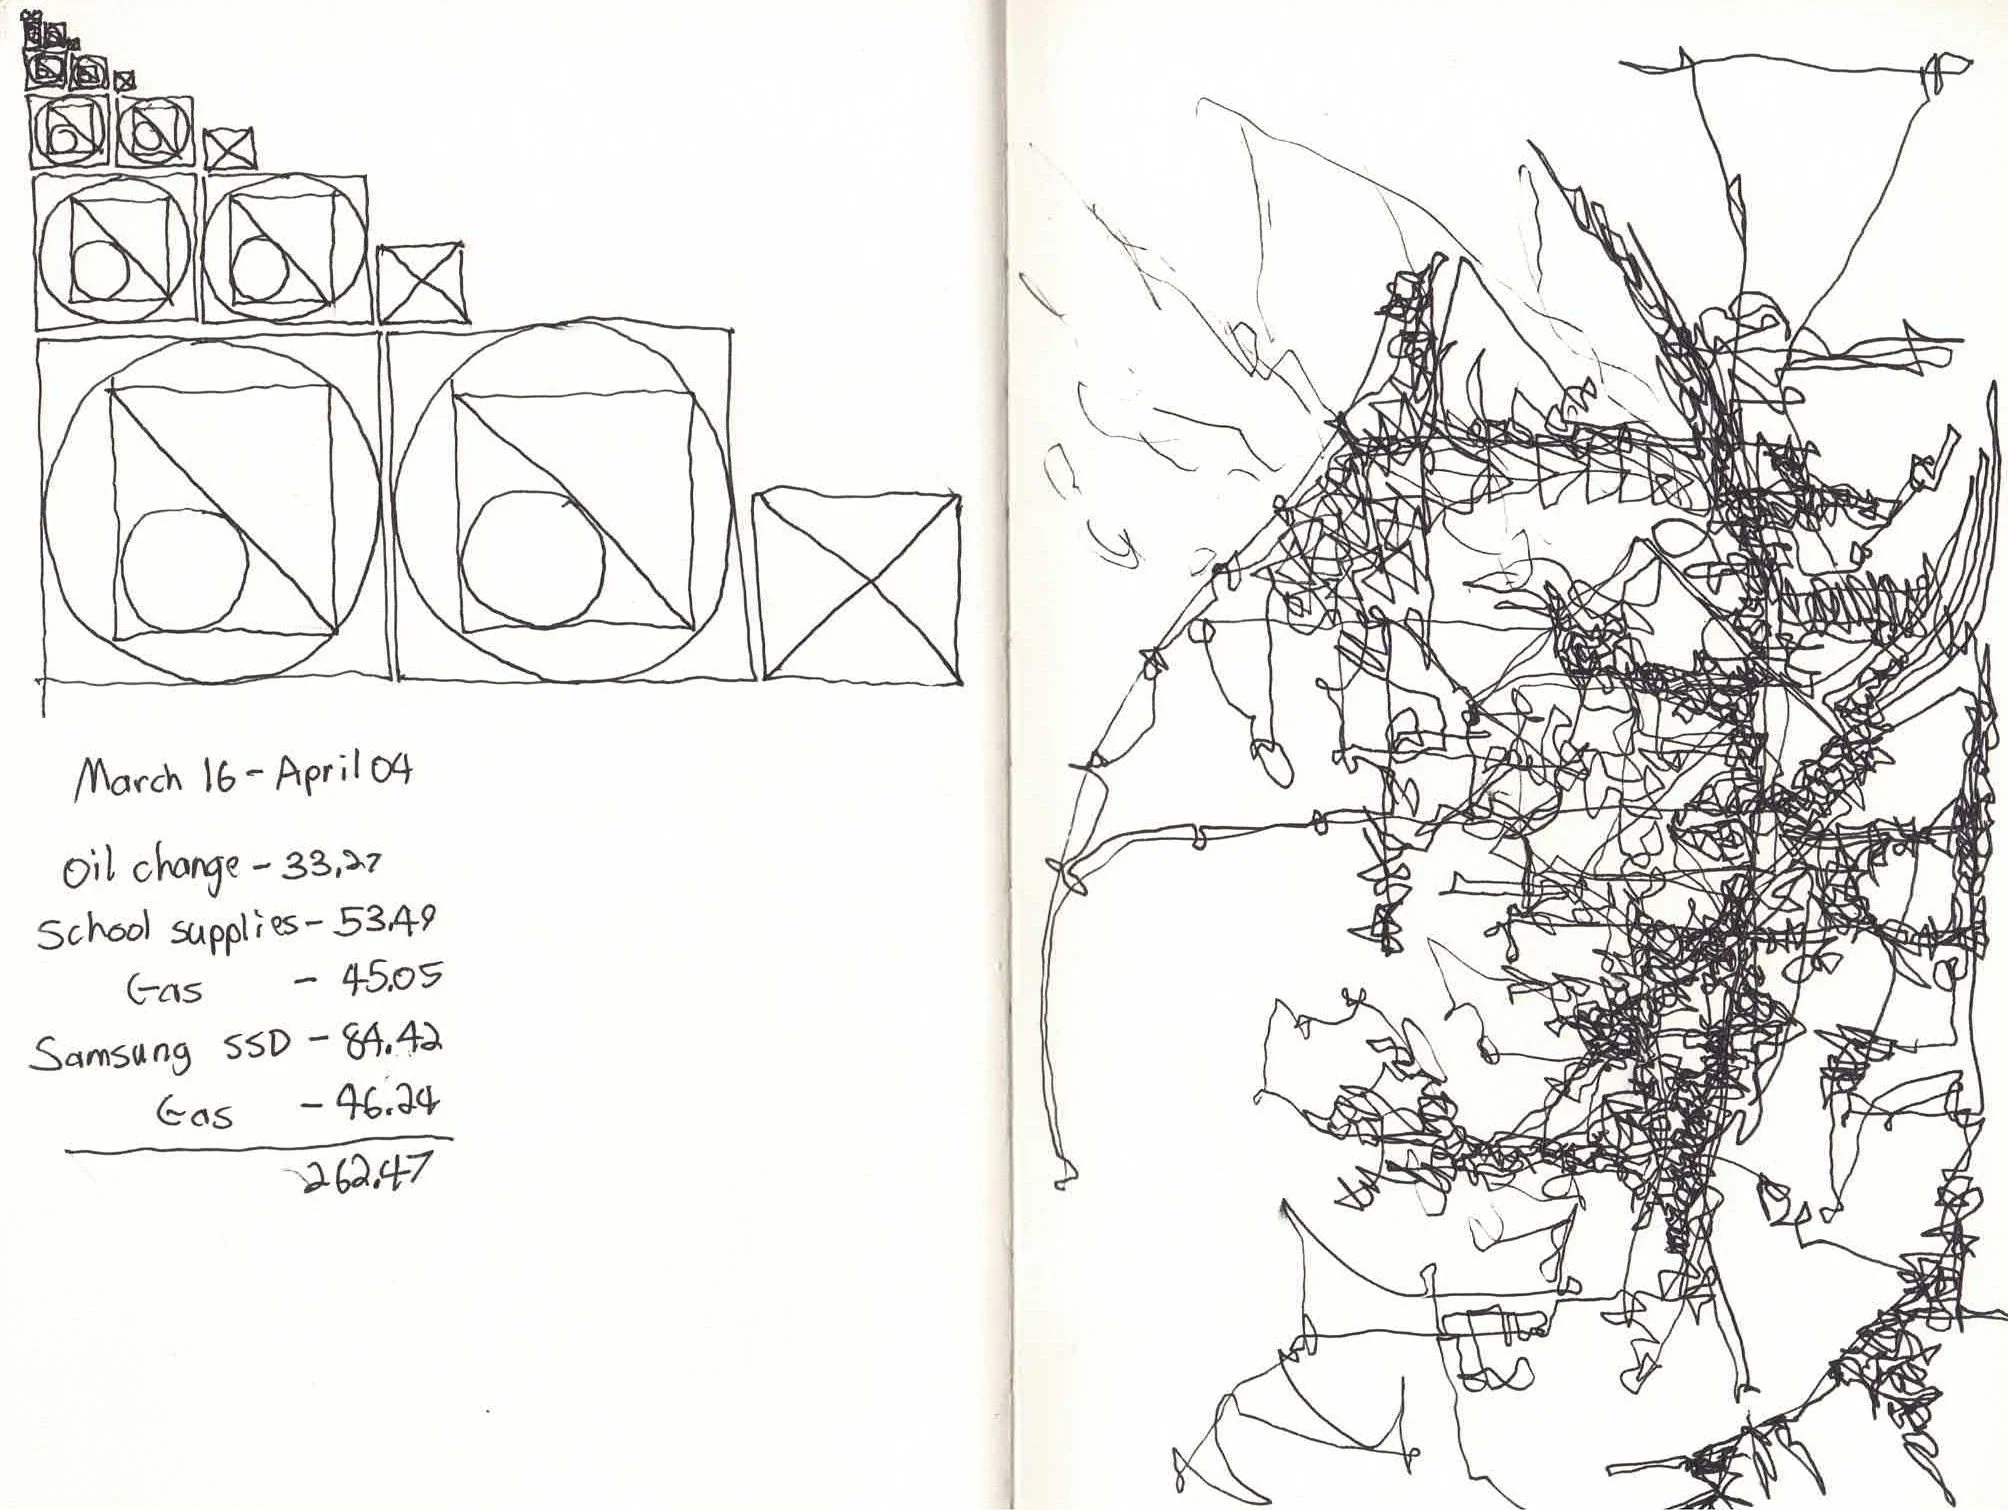 March 16 - April 04
Oil change - 33.27
School supplies - 53.49
Gas - 45.05
Samsung SSD - 84.42
Gas - 46.24
262.47